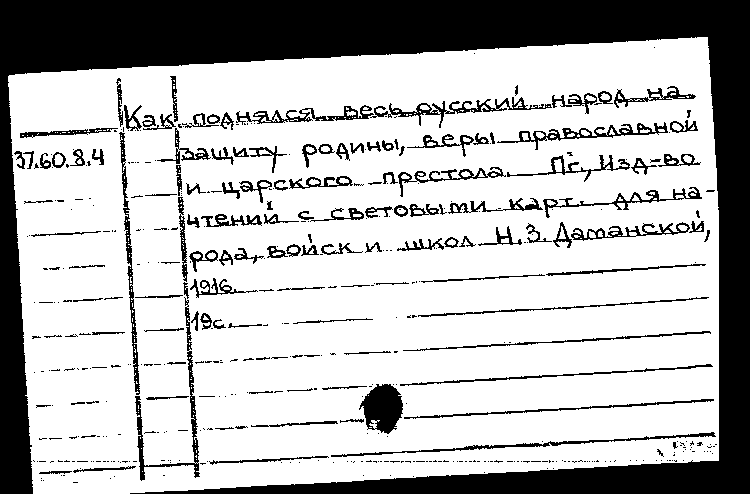 Как поднялся весь русский народ на
37.60.8.4
защиту родины, веры православной
и царского престола. Пг., Изд-во
чтений с световыми карт. для на-
рода, войск и школ Н.З. Даманской,
1916.
19с.